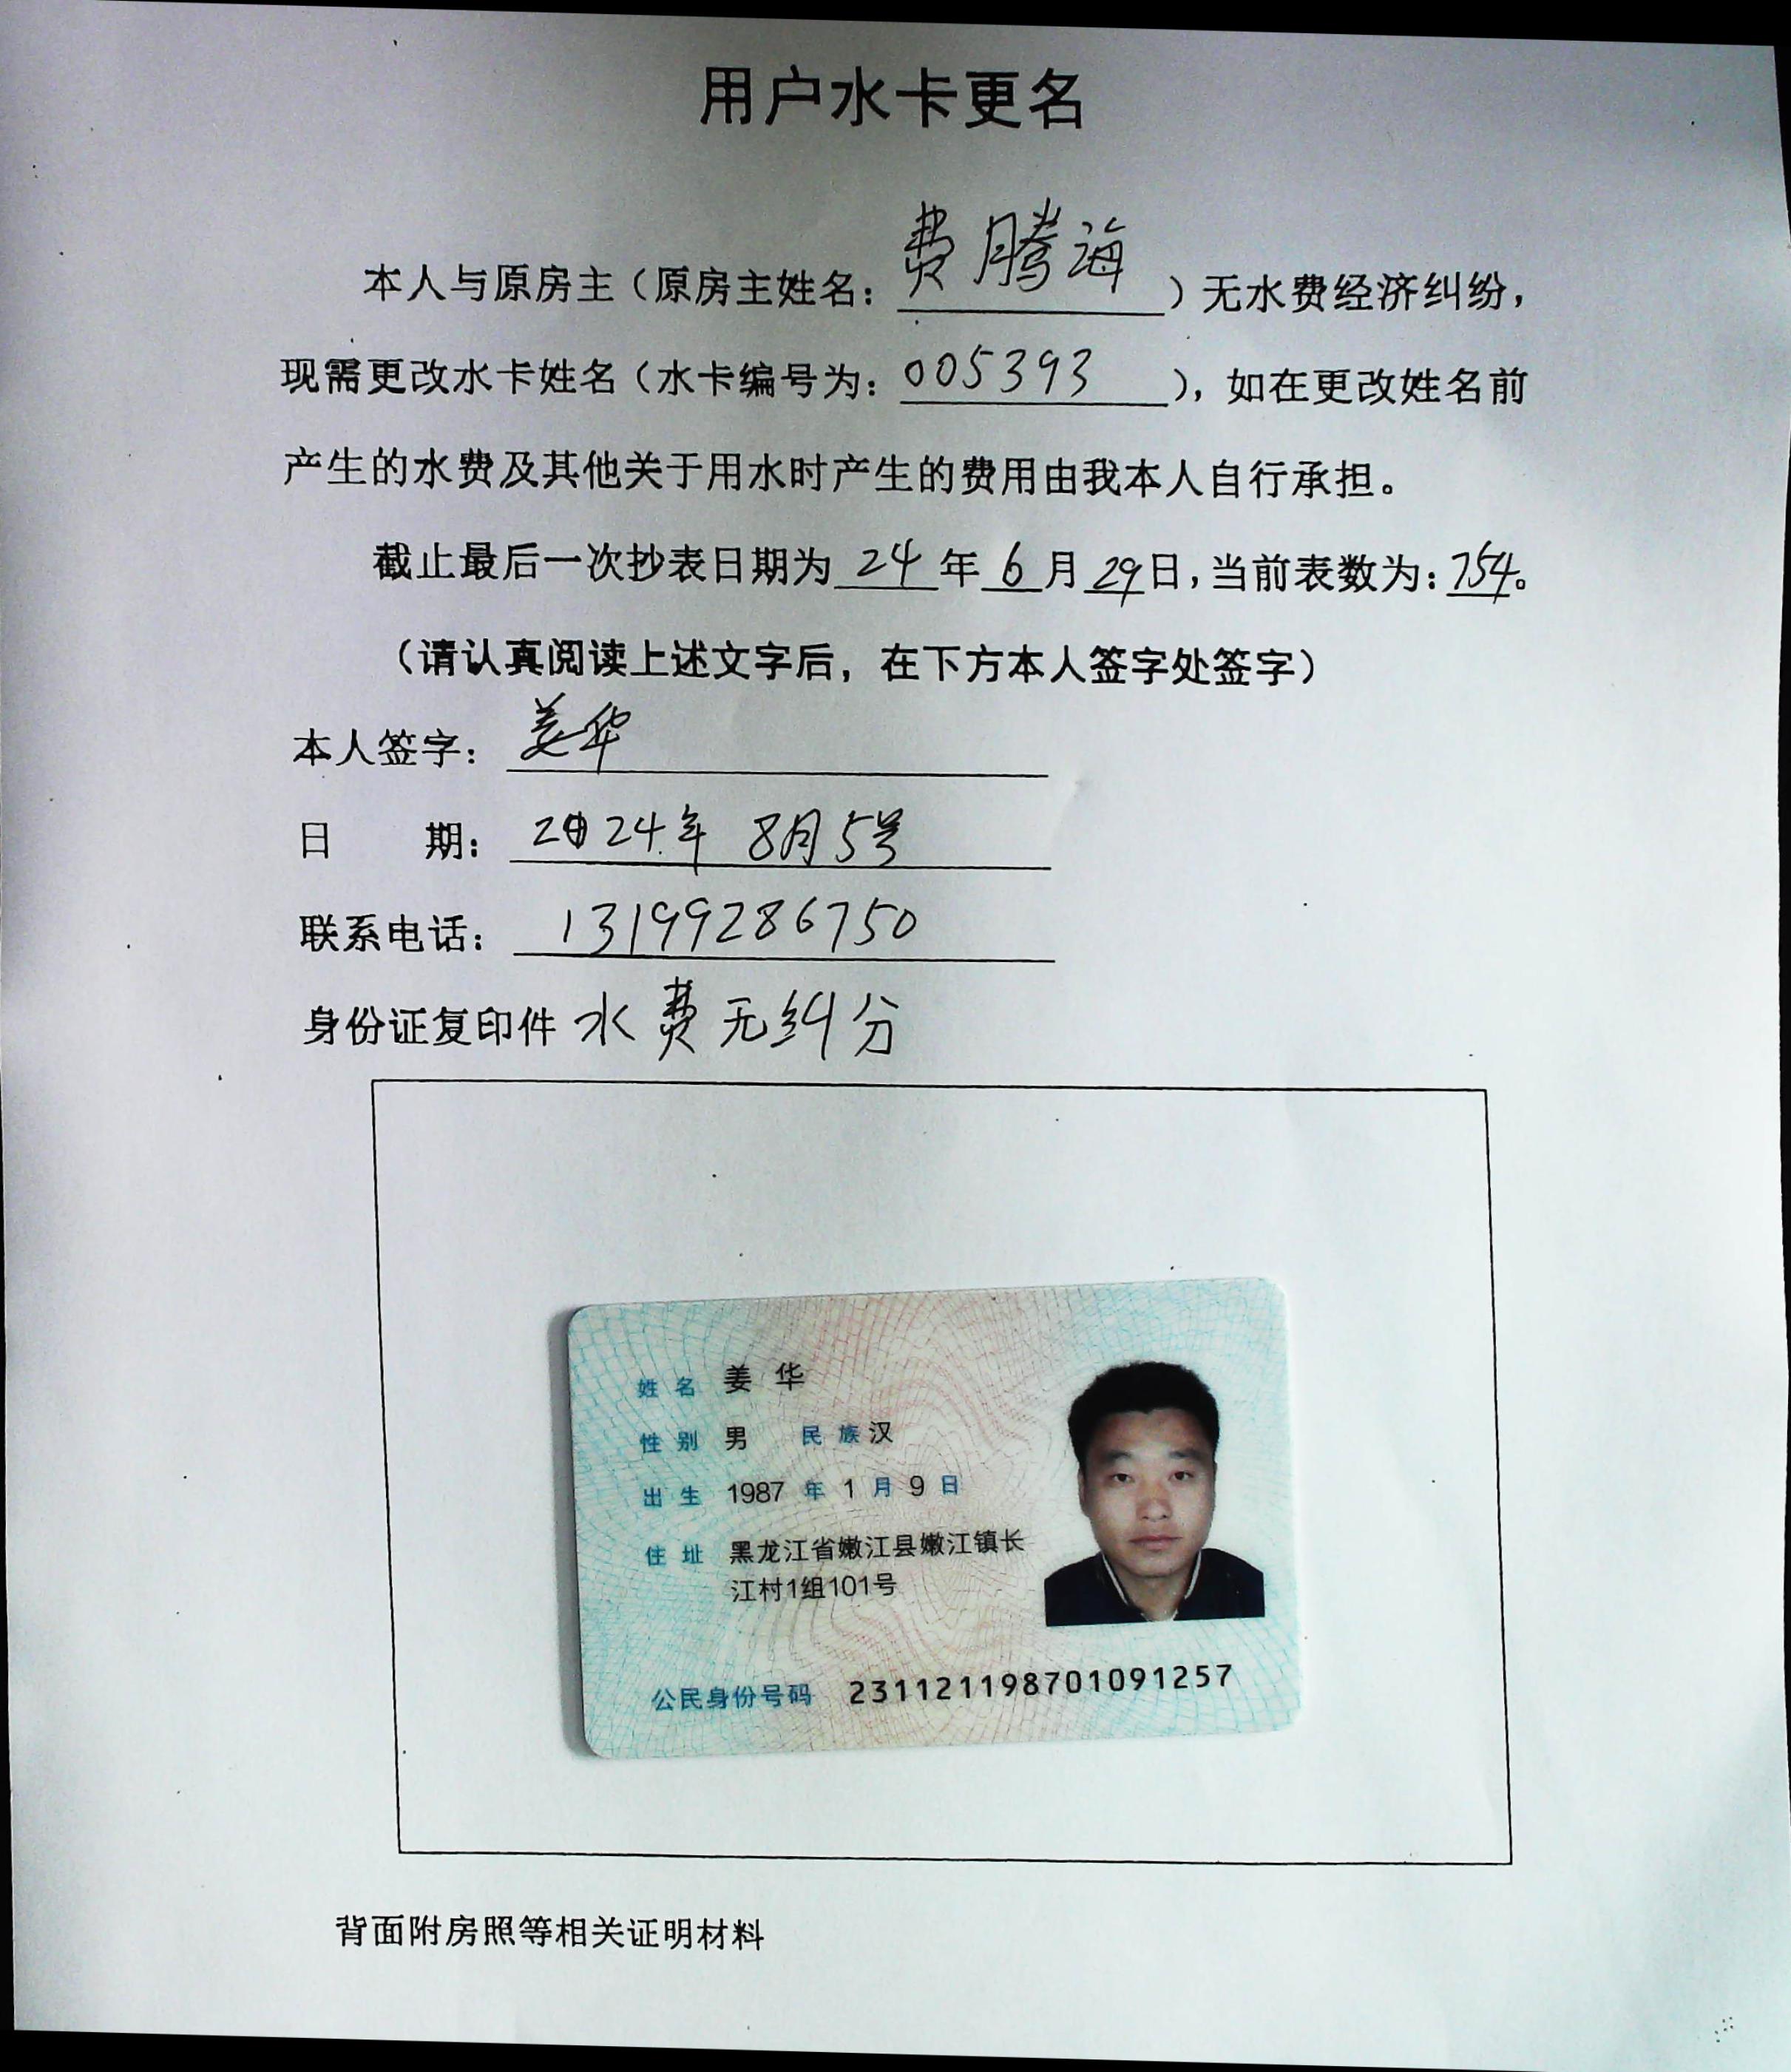 用户水卡更名
本人与原房主（原房主姓名：费腾海）无水费经济纠纷，
现需更改水卡姓名（水卡编号为：005393），如在更改姓名前
产生的水费及其他关于用水时产生的费用由我本人自行承担。
截止最后一次抄表日期为24年6月29日，当前表数为：754。
（请认真阅读上述文字后，在下方本人签字处签字）
本人签字：姜华
日 期：2024年 8月5号
联系电话：13199286750
身份证复印件 水费无纠分
姓名 姜华
性别 男 民族 汉
出生 1987 年 1 月 9 日
住址 黑龙江省嫩江县嫩江镇长
江村1组101号
公民身份号码 231121198701091257
背面附房照等相关证明材料